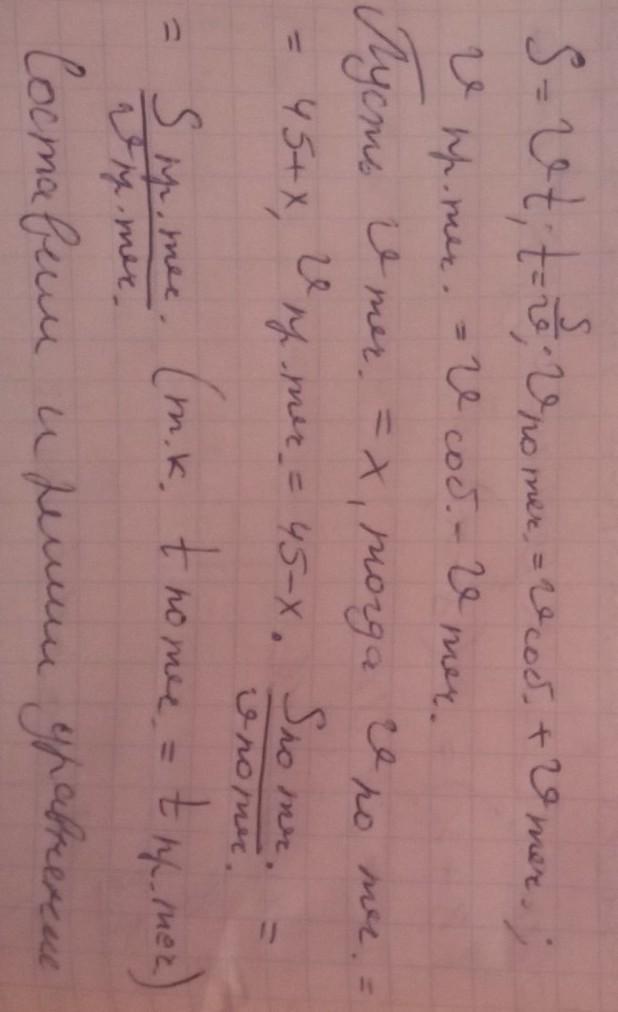 S = vt; t = S/v; v по теч. = v соб. + v теч.;
v пр. теч. = v соб. - v теч.
Пусть v теч. = x, тогда v по теч. =
= 45+x, v пр. теч. = 45-x. S по теч./v по теч. =
= S пр. теч./v пр. теч. (т.к. t по теч. = t пр. теч)
Составим и решим уравнение